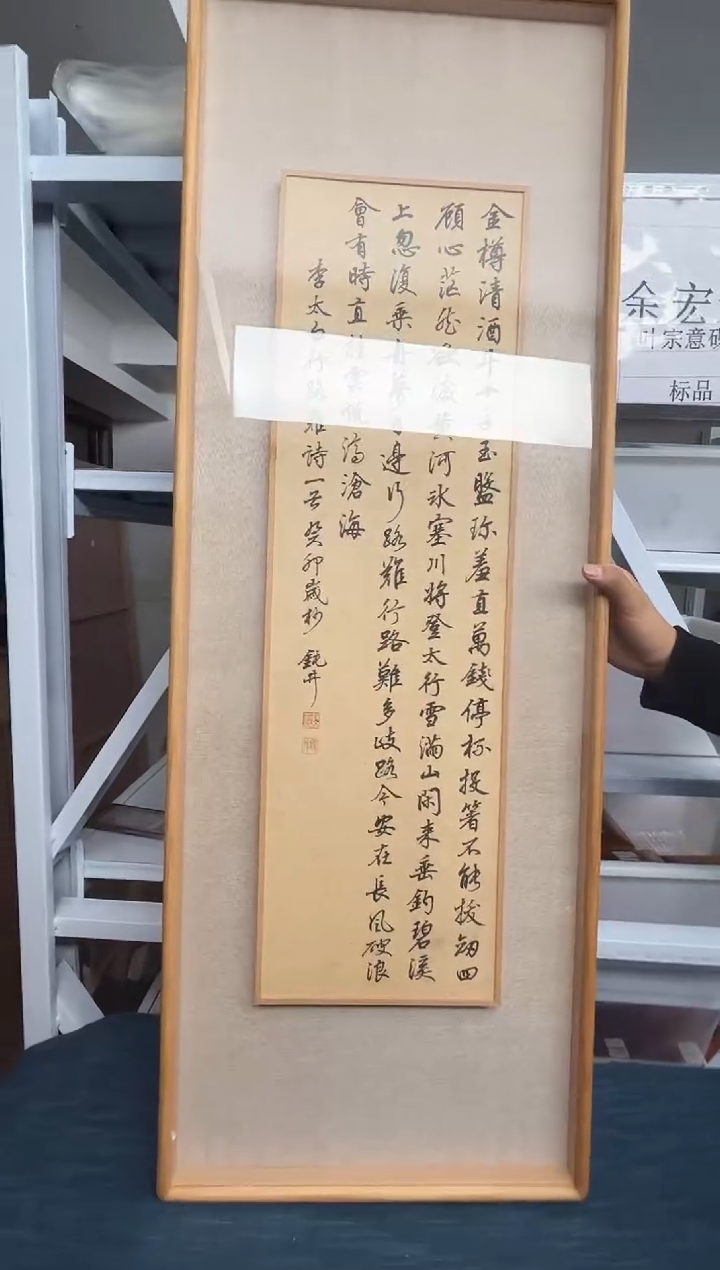 金樽清酒斗十千玉盤珎羞直萬錢停杯投箸不能拔劒四
顧心茫然欲渡黃河氷塞川將登太行雪滿山閑来垂釣碧溪
上忽復乘舟夢日邊行路難行路難多歧路今安在長風破浪
會有時直挂雲帆濟滄海
李太白行路難詩一首 癸卯歲杪 鏡井
余宏
叶宗意砚
标品